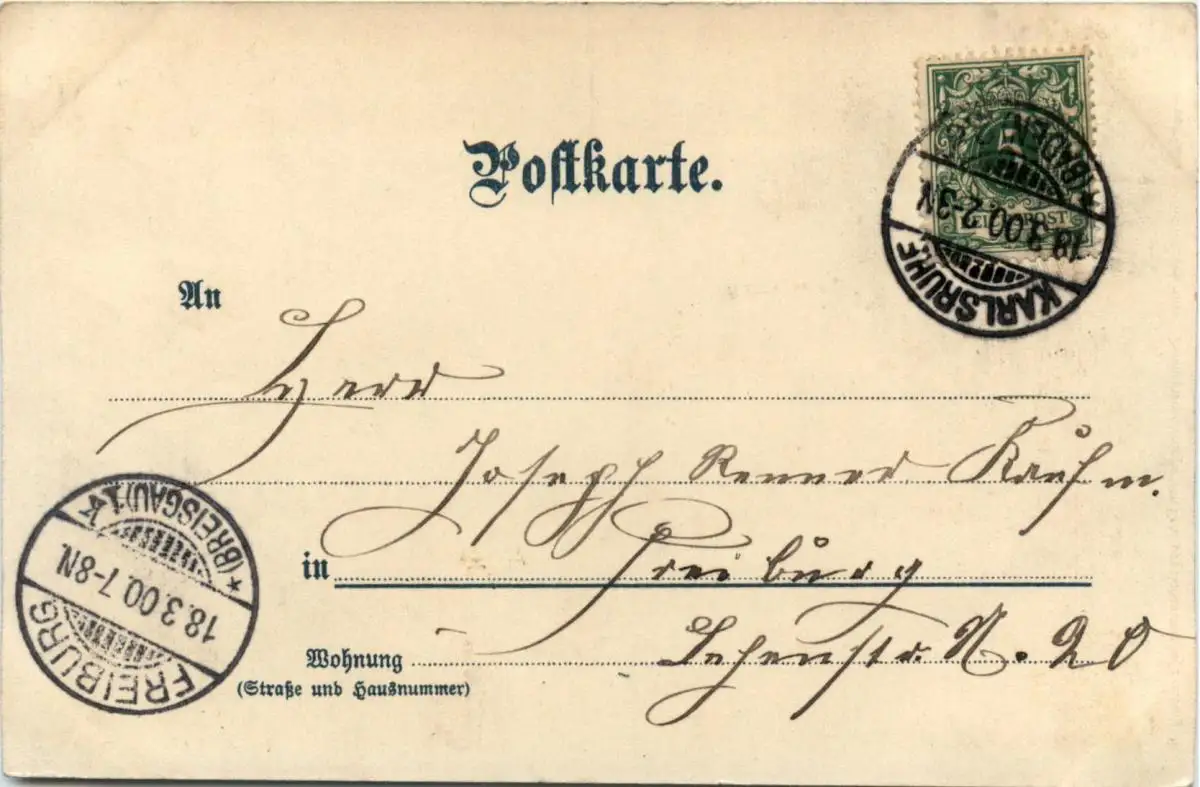 Postkarte.
5
REICHSPOST
KARLSRUHE
18.3.00.2-3N.
*(BADEN)
An
Herr
Joseph Renner Kaufm.
in Freiburg
Wohnung Lehenstr. N. 20
(Straße und Hausnummer)
FREIBURG
18.3.00.7-8N.
*(BREISGAU) 1